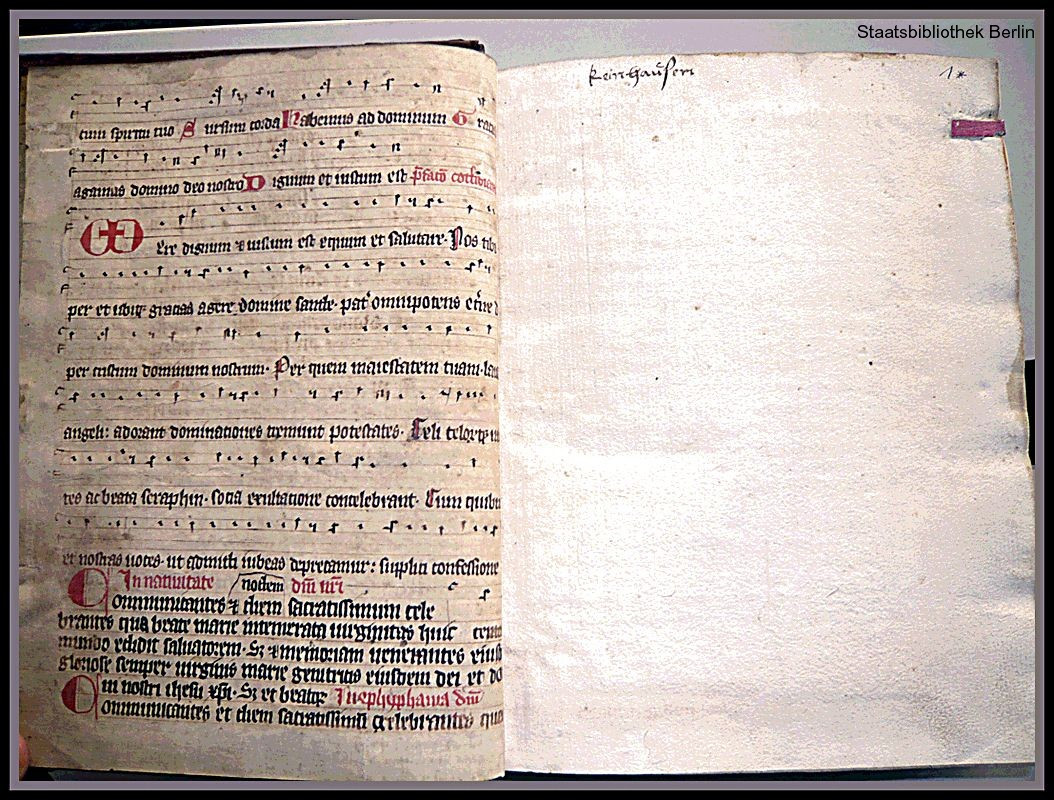 Staatsbibliothek Berlin
cum spiritu tuo Sursum corda Habemus ad dominum Gra
agamus domino deo nostro Dignum et iustum est
Vere dignum et iustum est equum et salutare. Nos tibi
per et ubique gracias agere domine sancte. pat omnipotens
per cristum dominum nostrum. Per quem maiestatem tuam. lau
angeli: adorant dominationes tremunt potestates. Celi celorꝫ
tes ac beata seraphin. socia exultatione concelebrant. Cum quibu
et nostras uoces. ut admitti iubeas deprecamur: supplici confessione
In natiuitate noctem dni nri
Communicantes et diem sacratissimum cele
brantes qua beate marie intemerata uirginitas huic
mundo edidit saluatorem. Sꝫ et memoriam uenerantes eiusd
gloriose semper uirginis marie genitricis eiusdem dei et do
ni nostri ihesu xpi. Sꝫ et beatoꝝ In epyphania dni
Communicantes et diem sacratissimum celebrantes quo
Reinhausen
1*